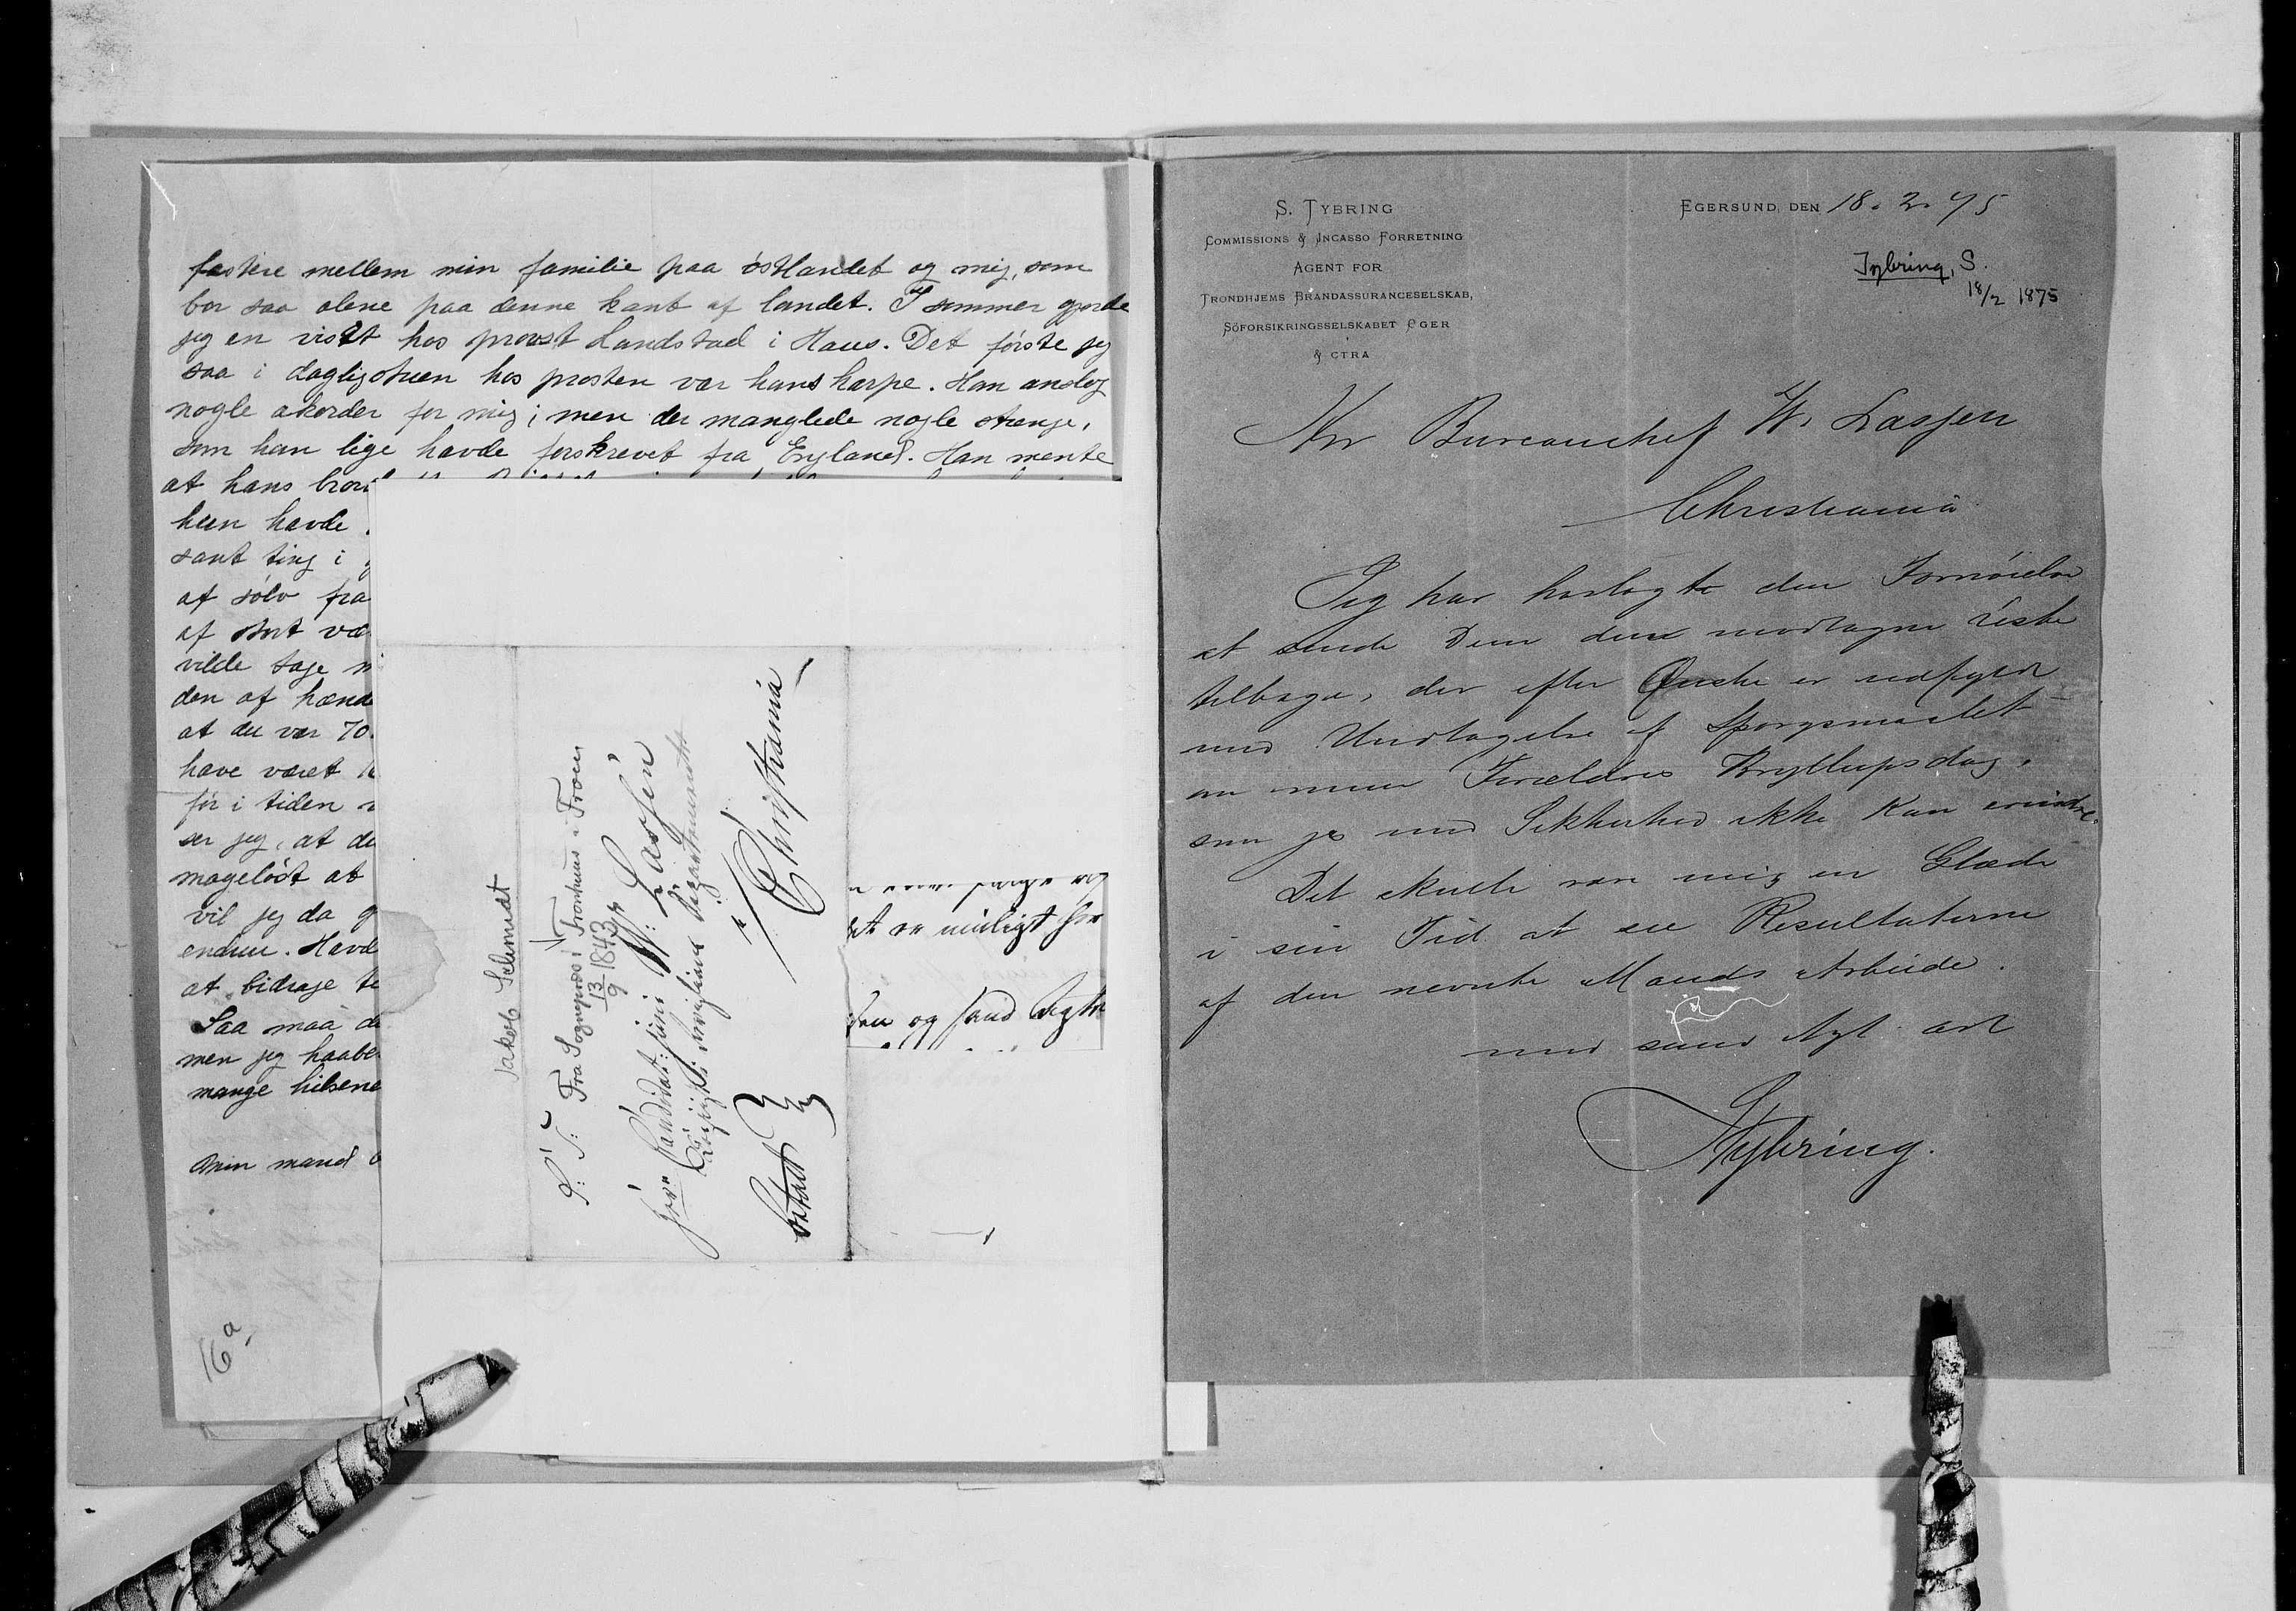 fastere mellem min familie paa östlandet og mig, som
bor saa alene paa denne kant af landet. I sommer gjorde
jeg en visit hos provst Landstad i Haus. Det förste jeg
saa i dagligstuen hos provsten var hans harpe. Han anslog
nogle akorder for mig; men der manglede nogle strenge,
som han lige havde forskrevet fra England. Han mente
at hans bror
hun havde
sant ting i
af sölv fra
af stort vær
vilde tage m
den af hænd
at du var 70.
have været
för i tiden
ser jeg, at de
magelöst at
vil jeg da g
endnu. Havd
at bidrage te
Saa maa de
men jeg haabe
mange hilsene
min mand o
16a
Jakob Schmidt
S: T: Fra Sognepræst i Tromhus i Tron
13/9 1843
Herr Candidat juris W: Lassen
Christiania
betalt
det er muligt for
den og sand Agte
S. TYBRING
COMMISSIONS & INCASSO FORRETNING
AGENT FOR
TRONDHJEMS BRANDASSURANCESELSKAB,
SÖFORSIKRINGSSELSKABET EGER
& CTRA
EGERSUND, DEN 18. 2. 75
Tybring, S.
18/2 1875
Hr Bureauchef W. Lassen
Christiania
Jeg har hoslagte den Fornöielse
at sende Dem den modtagne Liste
tilbage, der efter Önske er udfyldt
med Undtagelse af Spörgsmaalet
om mine Forældres Bryllupsdag,
som jeg med Sikkerhed ikke kan erindre.
Det skulle være mig en Glæde
i sin Tid at see Resultaterne
af den nevnte Mands Arbeide.
med sand Agt. art
STybring.